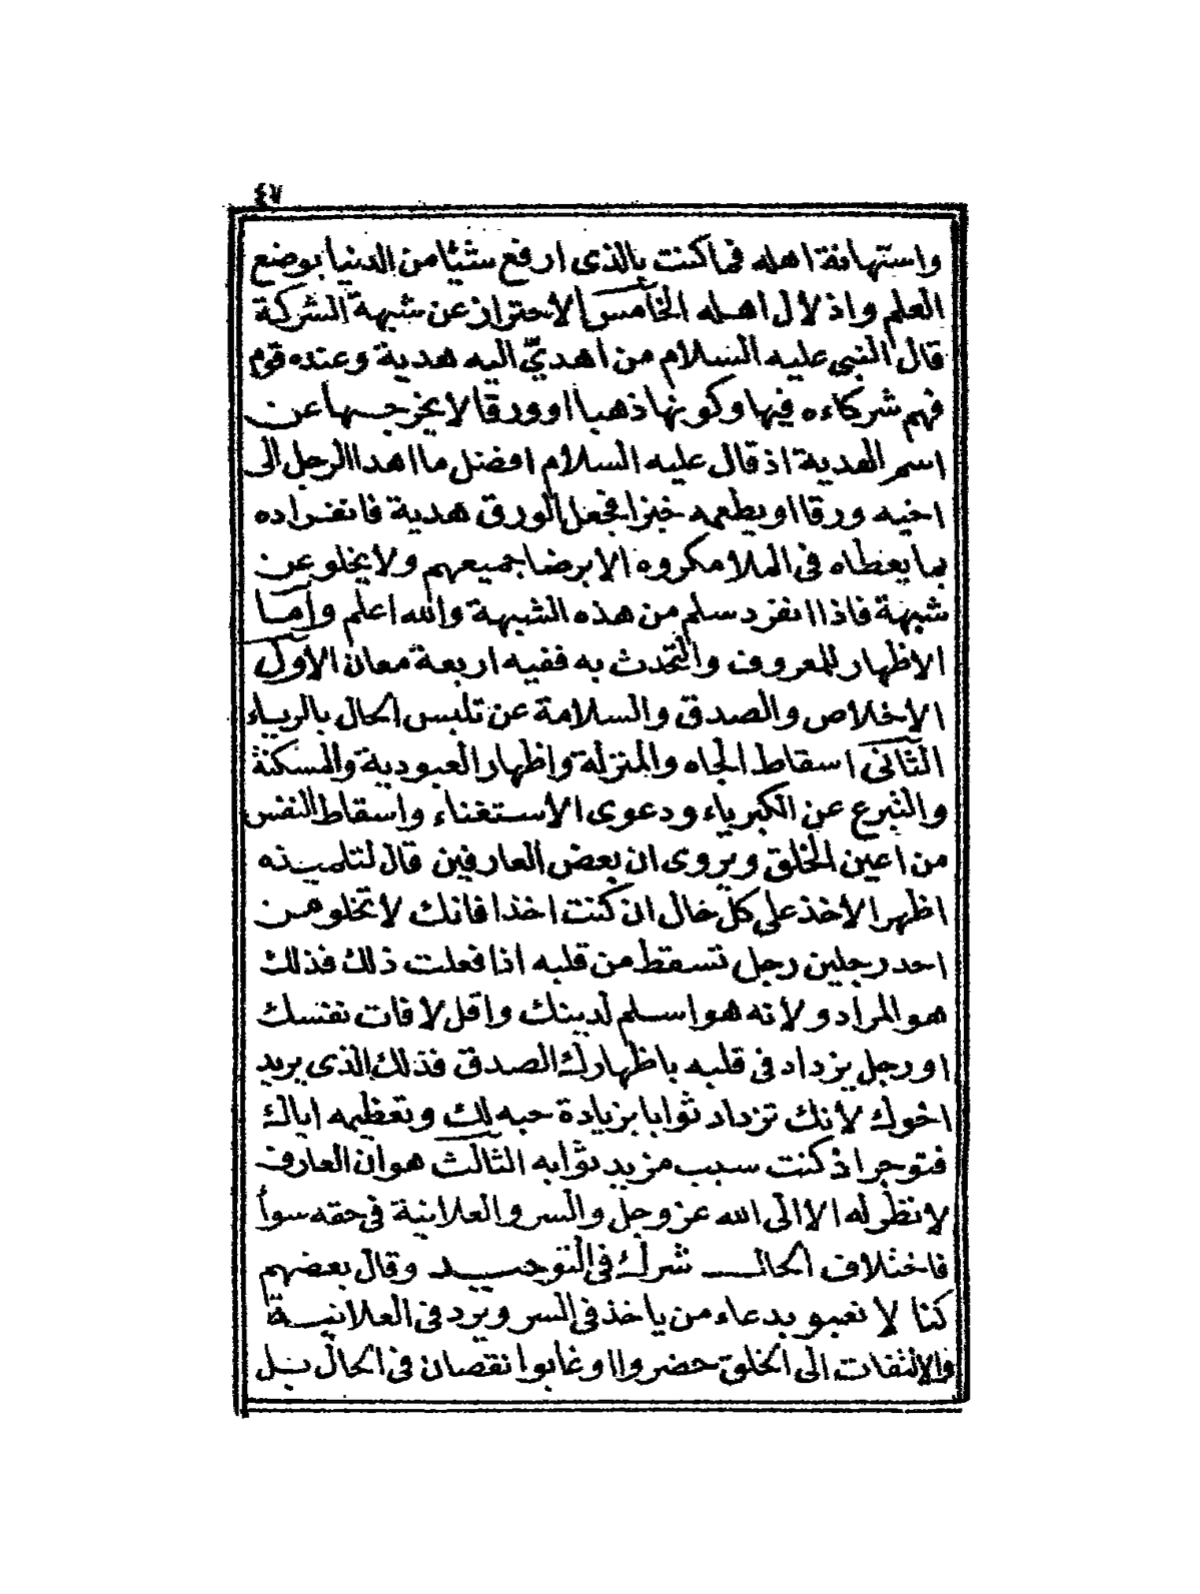 ٤٧
واستهانة اهله فما كنت بالذى ارفع شيئا من الدنيا بوضع
العلم واذلال اهله الخامس الاحتراز عن شبهة الشركة
قال النبى عليه السلام من اهدىّ اليه هدية وعنده قوم
فهم شركاءه فيها وكونها ذهبا اوورقا لا يخرجها عن
اسم الهدية اذ قال عليه السلام افضل ما اهدا الرجل الى
اخيه ورقا او يطعمه خبزا فجعل الورق هدية فانفراده
بما يعطاه فى الملا مكروه الا برضا جميعهم ولا يخلو عن
شبهة فاذا انفرد سلم من هذه الشبهة والله اعلم واما
الاظهار للمعروف والتحدث به ففيه اربعة معان الاول
الاخلاص والصدق والسلامة عن تلبس الحال بالرياء
الثانى اسقاط الجاه والمنزلة واظهار العبودية والمسكنة
والتبرع عن الكبرياء ودعوى الاستغناء واسقاط النفس
من اعين الخلق ويروى ان بعض العارفين قال لتلميذه
اظهر الاخذ على كل حال ان كنت اخذا فانك لا تخلو من
احد رجلين رجل تسقط من قلبه اذا فعلت ذلك فذلك
هو المراد ولانه هو اسلم لدينك واقل لافات نفسك
او رجل يزداد فى قلبه باظهارك الصدق فذلك الذى يريد
اخوك لانك تزداد ثوابا بزيادة حبه لك وتعظيمه اياك
فتوجر اذ كنت سبب مزيد ثوابه الثالث هو ان العارف
لا نظر له الا الى الله عز وجل والسر والعلانية فى حقه سواً
فاختلاف الحال شرك فى التوحيد وقال بعضهم
كنا لا نعبو بدعاء من ياخذ فى السر ويرد فى العلانية
والالتفات الى الخلق حضروا او غابوا نقصان فى الحال بل